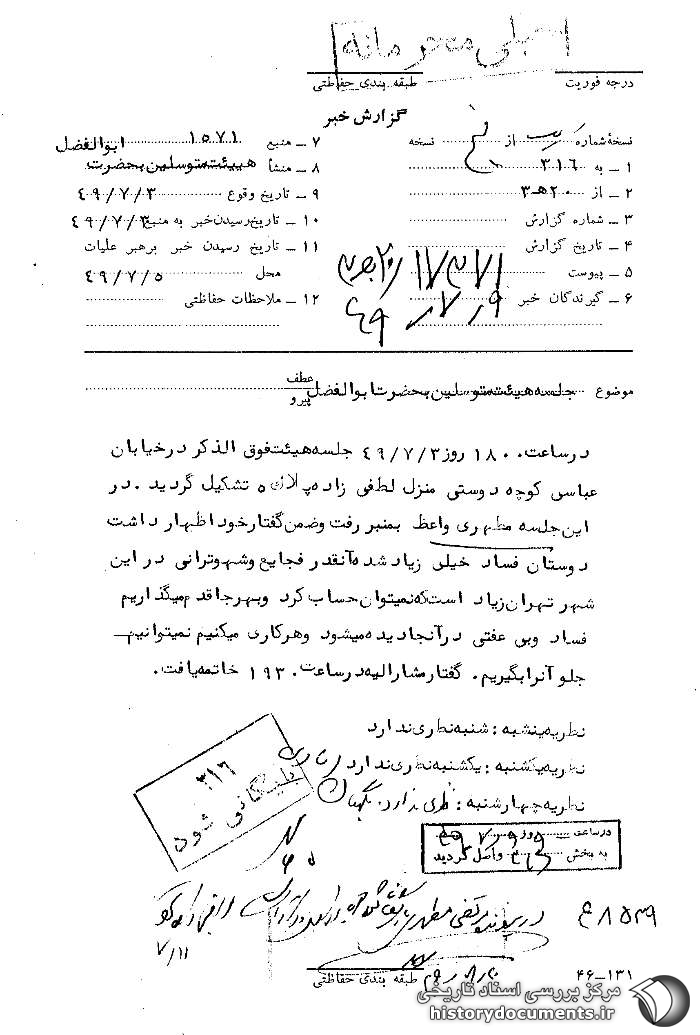 درجه فوریت
طبقه بندی حفاظتی
گزارش خبر
نسخهٔ شماره یک از نسخه
۱ ـ به ۳۱۶
۲ ـ از ۲۰ هـ ۳
۳ ـ شماره گزارش
۴ ـ تاریخ گزارش
۵ ـ پیوست
۶ ـ گیرندگان خبر
۷ ـ منبع ۱۵۷۱
۸ ـ منشأ هیئت متوسلین بحضرت ابوالفضل
۹ ـ تاریخ وقوع ۴۹/۷/۳
۱۰ ـ تاریخ رسیدن خبر به منبع ۴۹/۷/۳
۱۱ ـ تاریخ رسیدن خبر برهبر عملیات
محل ۴۹/۷/۵
۱۲ ـ ملاحظات حفاظتی
موضوع جلسه هیئت متوسلین بحضرت ابوالفضل عطف پیرو
درساعت ۱۸۰۰ روز ۴۹/۷/۳ جلسه هیئت فوق الذکر درخیابان
عباسی کوچه دوستی منزل لطفی زاده پلاک ۵ تشکیل گردید . در
این جلسه مطهری واعظ بمنبر رفت وضمن گفتار خود اظهار داشت
دوستان فساد خیلی زیاد شده آنقدر فجایع وشهوترانی در این
شهر تهران زیاد است که نمیتوان حساب کرد وبهرجا قدم میگذاریم
فساد وبی عفتی در آنجا دیده میشود وهرکاری میکنیم نمیتوانیم
جلو آنرا بگیریم . گفتار مشارالیه درساعت ۱۹۳۰ خاتمه یافت .
نظریه شنبه : شنبه نظری ندارد
نظریه یکشنبه : یکشنبه نظری ندارد
نظریه چهارشنبه : نظری ندارد .
۳۱۶
بایگانی شود
درساعت روز
به بخش واصل گردید
۷/۱۱
طبقه بندی حفاظتی
۴۶-۱۳۱
مرکز بررسی اسناد تاریخی
historydocuments.ir